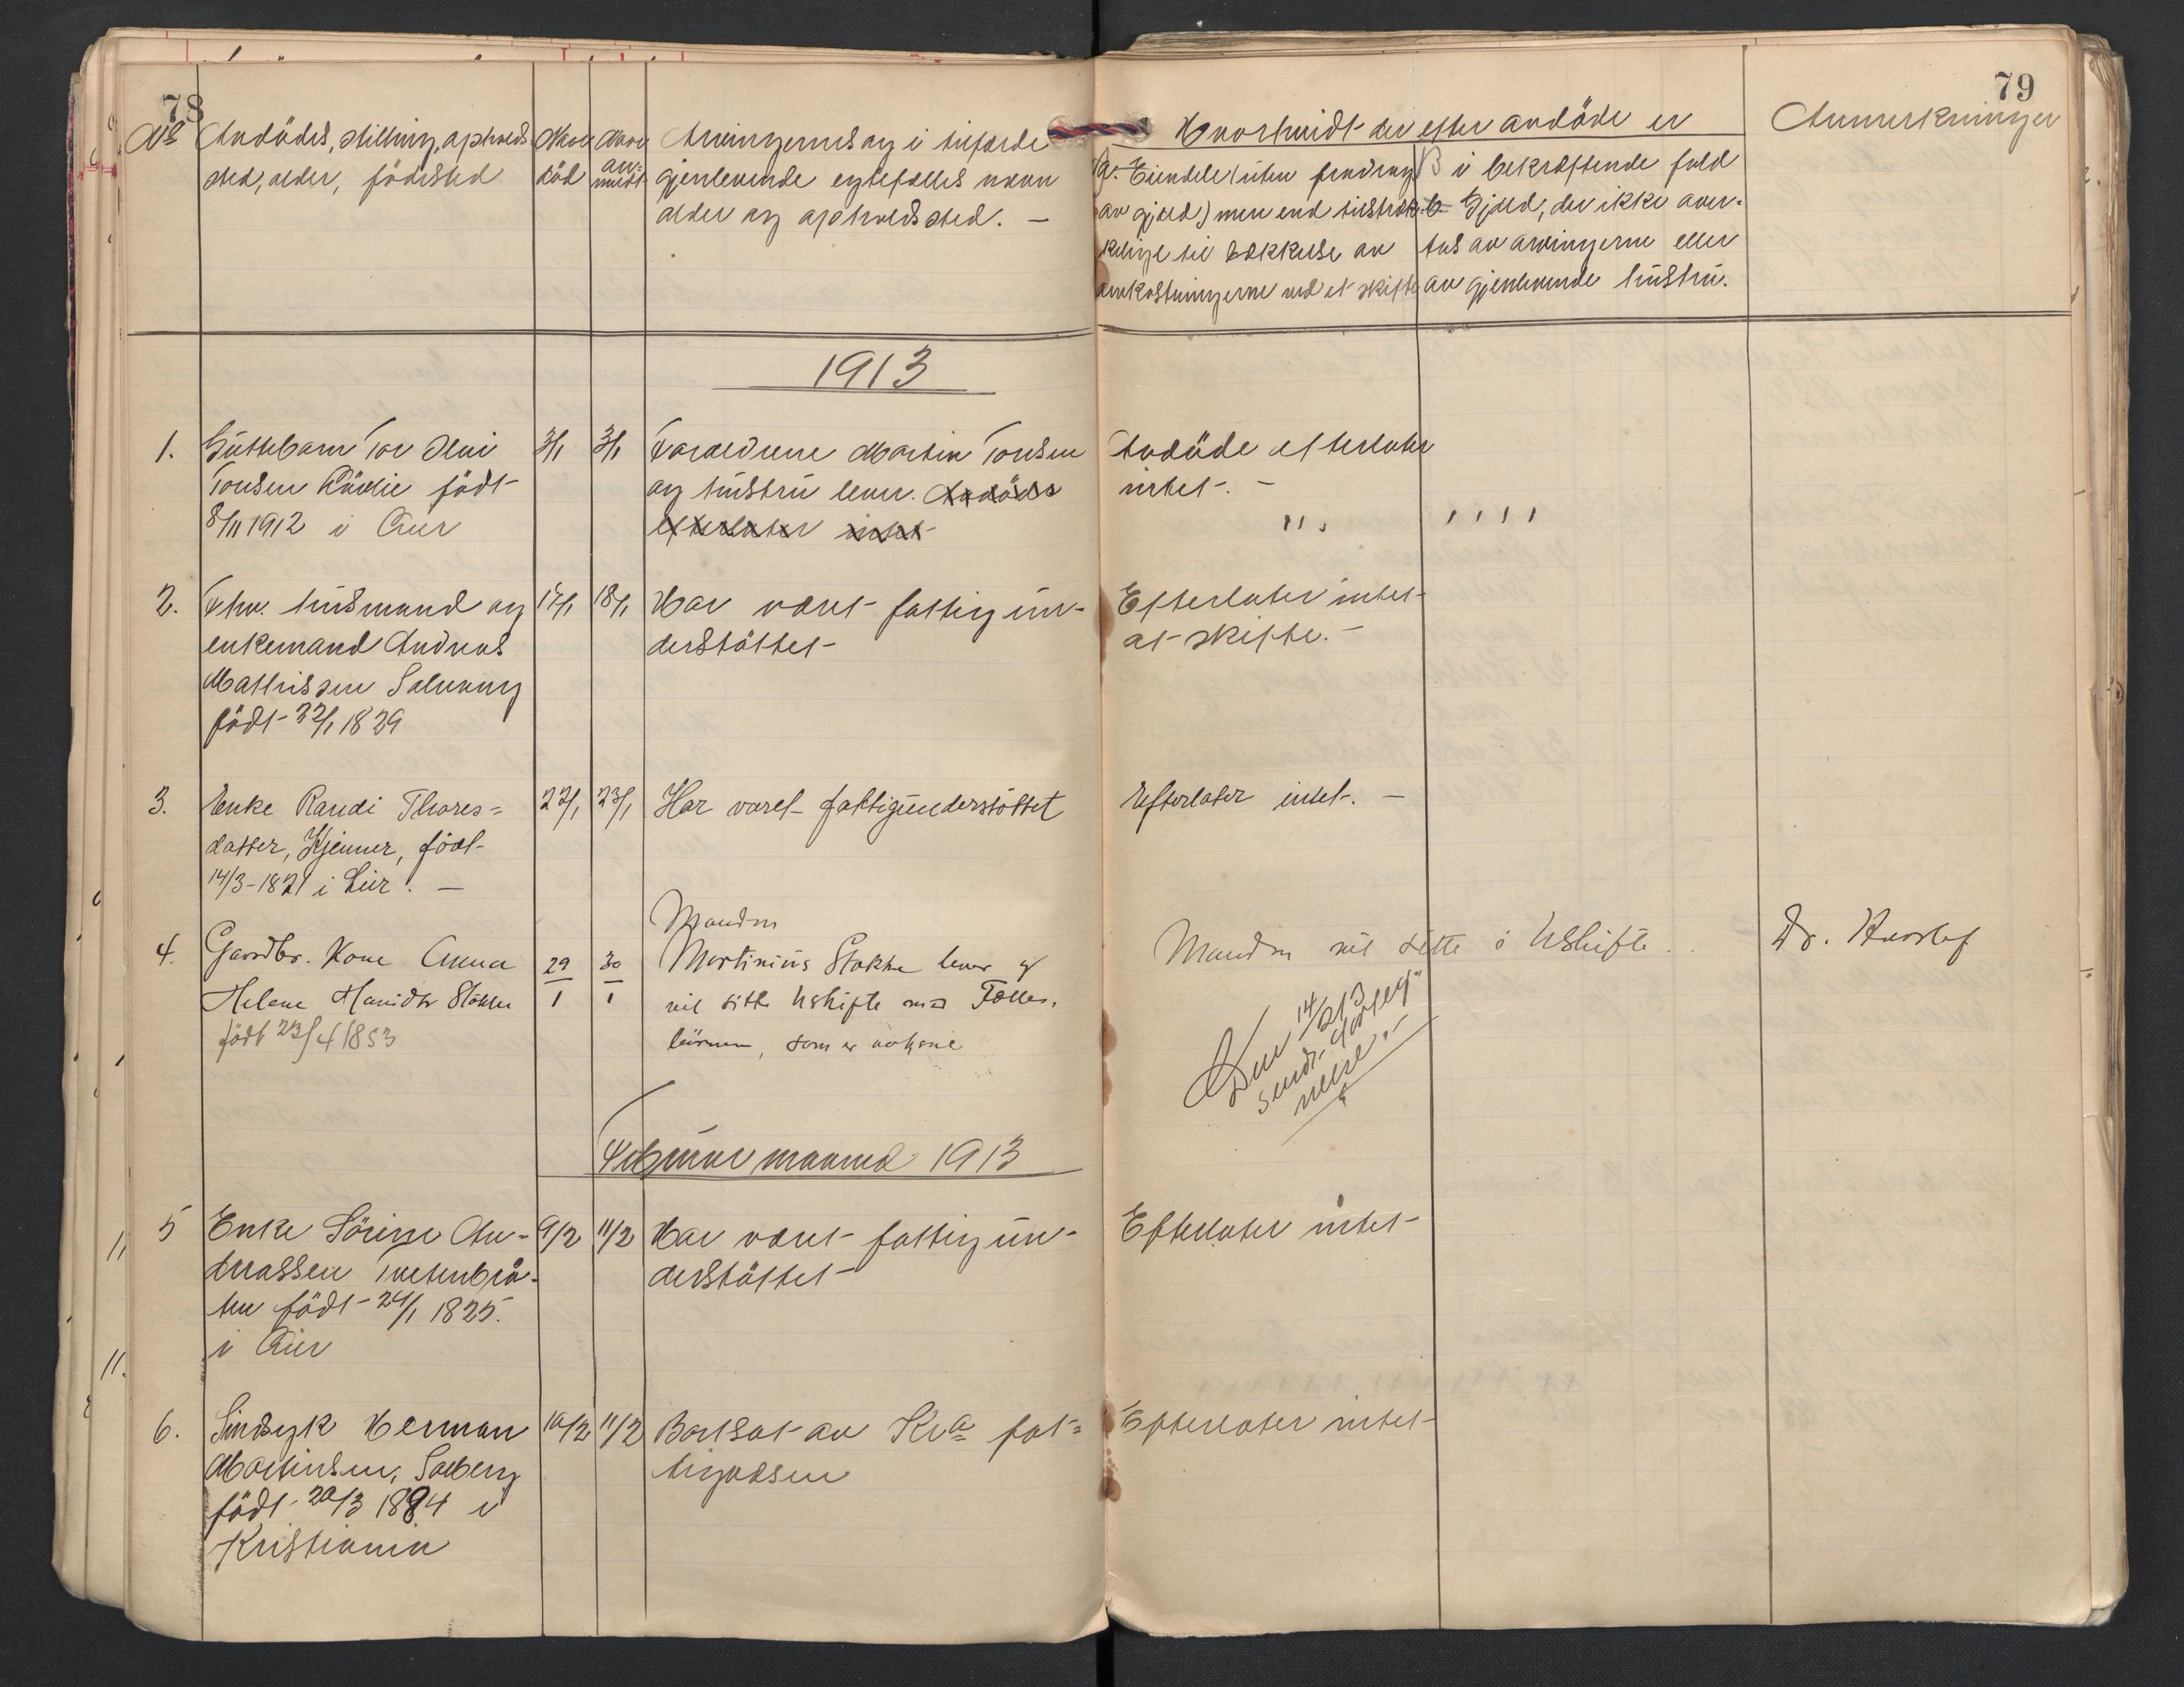 78
No Avdödes, stilling, opholds-
sted, alder, födested
Naar
död
Naar
an-
meldt
Arvingernes og i tilfælde
gjenlevende egtefælles navn
alder og opholdssted. —
79
Hvorhvidt der efter avdöde er
a. Eiendele (uten fradrag
av gjæld) mere end tilstræk-
kelige til dækkelse av
omkostningerne ved et skifte
B i bekræftende fald
Gjæld, der ikke over-
tas av arvingerne eller
av gjenlevende hustru.
Anmerkninger
1913
1. Guttebarn Tor
Tonsen födt
8/11 1912 i Aur
3/1 3/1
Forældrene Martin Tonsen
og hustru lever. Avdöde
efterlater intet
Avdöde efterlater
intet. —
" "
2. Fhv. husmand og
enkemand Andreas
Mathissen
födt 22/1 1829
17/1 18/1
Har været fattigun-
derstöttet
Efterlater intet
at skifte. —
3. Enke Randi Thores=
datter, Kjenner, född
14/3-1821 i Lier. —
22/1 23/1
Har været fattigunderstöttet
Efterlater intet. —
4. Gaardbr. Kone Anna
Helene Stokke
födt 23/4 1853
29/1 30/1
Manden
Martinius Stokke lever og
vil sitte Uskifte med Fælles.
börnene, som er voksne
Manden vil sitte i Uskifte.
14/2 13
Dr.
Februar maaned 1913
5 Enke Sörine An-
dreassen
födt 24/1 1825.
i Aur
9/2 11/2
Har været fattigun-
derstöttet
Efterlater intet
6. Sindsyk Herman
Martinsen, Solberg
födt 20/3 1884 i
Kristiania
10/2 11/2
Bortsat av Kra fat=
tigvæsen
Efterlater intet